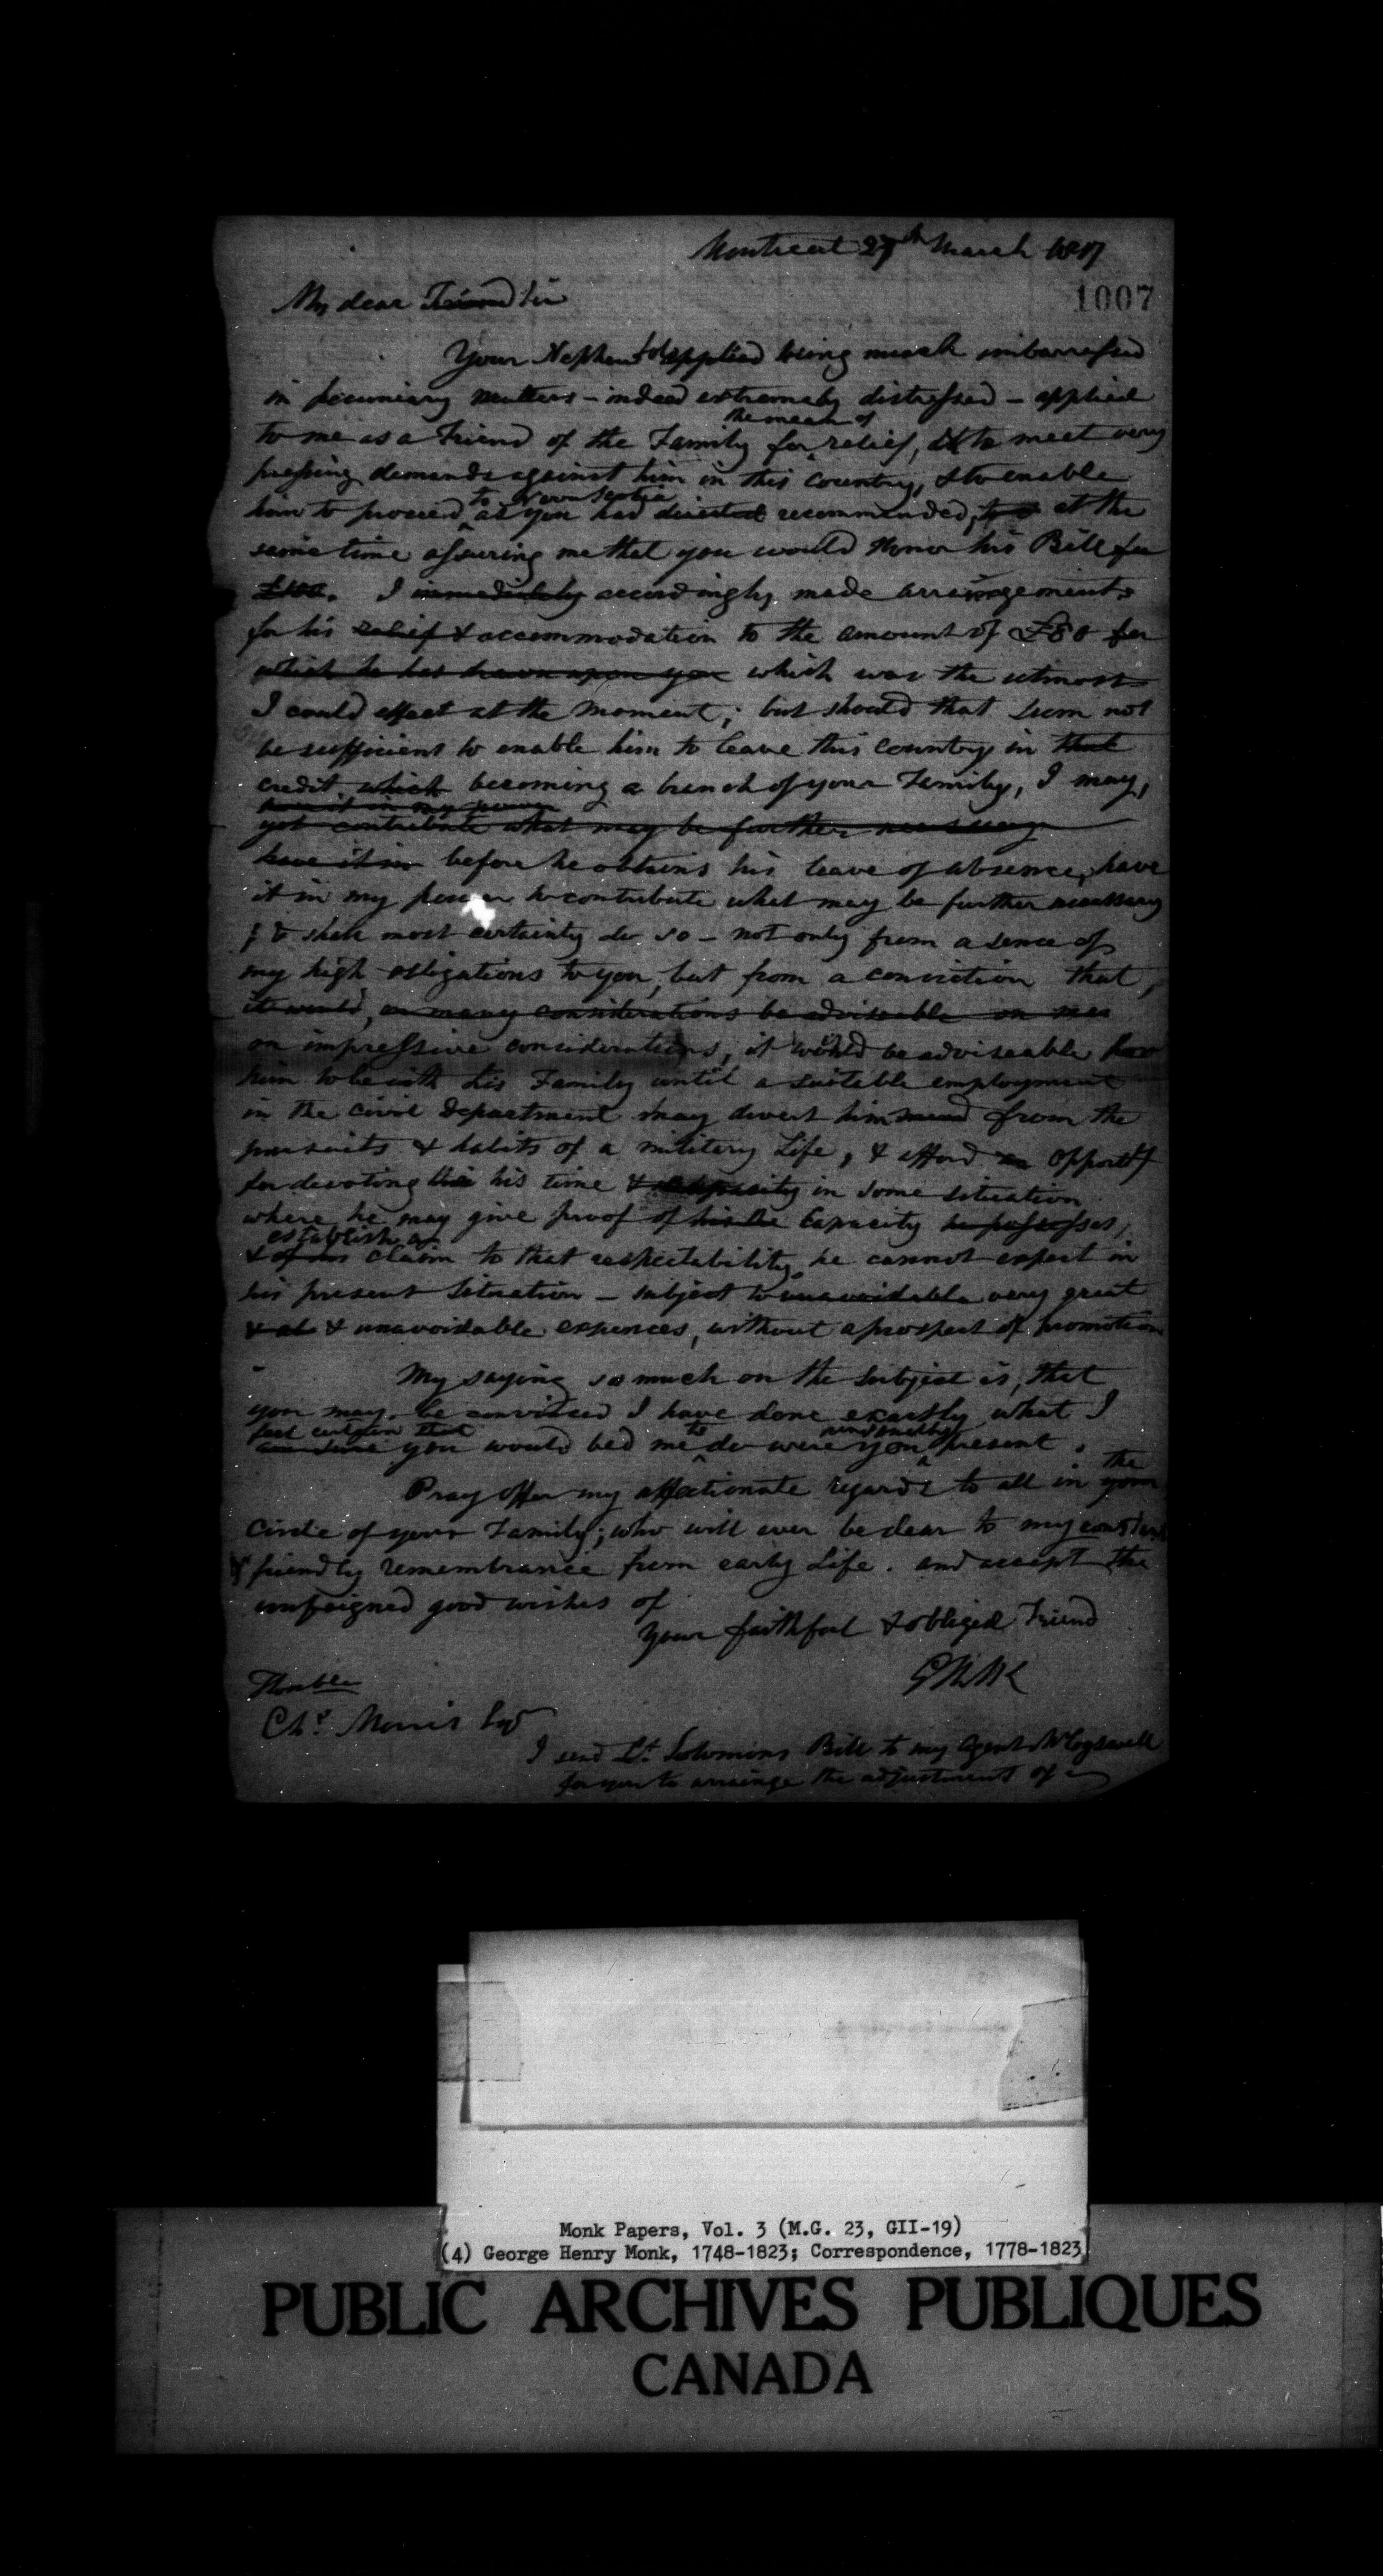 Montreal 27th March
1007
My dear Friend Sir
Your Nephew applied being much imbarrassed
in pecuniary matters - indeed extremely distressed - applied
the means of
to me as a Friend of the Family for relief, to meet very
pressing demands against him in this Country, & to enable
to Nova Scotia
him to proceed as you had directed recommended, at the
same time assuring me that you would Honor his Bill for
£100. I immediately accordingly made arrangements
for his relief & accommodation to the amount of £80 for
which he has drawn upon you which was the utmost
I could effect at the moment; but should that Sum not
be sufficient to enable him to leave this Country in that
credit which becoming a branch of your Family, I may,
have it in my power
yet contribute what may be further necessary
have it in before he obtains his leave of absence, have
it in my power to contribute what may be further necessary
& shall most certainly do so - not only from a sence of
my high obligations to you, but from a conviction that,
it would, on many considerations be adviseable
on impressive considerations, it would be adviseable for
him to be with his Family until a suitable employment
in the civil Department may divert him from the
pursuits & habits of a military Life, & afford an Opporty
for devoting his time & capacity in some situation
where he may give proof of his Capacity he possesses,
establish a
& of claim to that respectability he cannot expect in
his present Situation - subject to unavoidable very great
& unavoidable expences, without a prospect of promotion
My saying so much on the Subject is, that
you may be convinced I have done exactly what I
feel certain that
am sure you would bid me to do were you present.
Pray offer my affectionate regards to all in your the
Circle of your Family; who will ever be dear to my constant
& friendly remembrance from early Life. and accept the
unfeigned good wishes of
Your faithful & obliged Friend
GHM
Honble
Chs. Morris Esqr
I send Lt. Solomons Bill to my Agent Mr Cogswell
for you to arrange the adjustment of
Monk Papers, Vol. 3 (M.G. 23, GII-19)
(4) George Henry Monk, 1748-1823; Correspondence, 1778-1823
PUBLIC ARCHIVES PUBLIQUES
CANADA